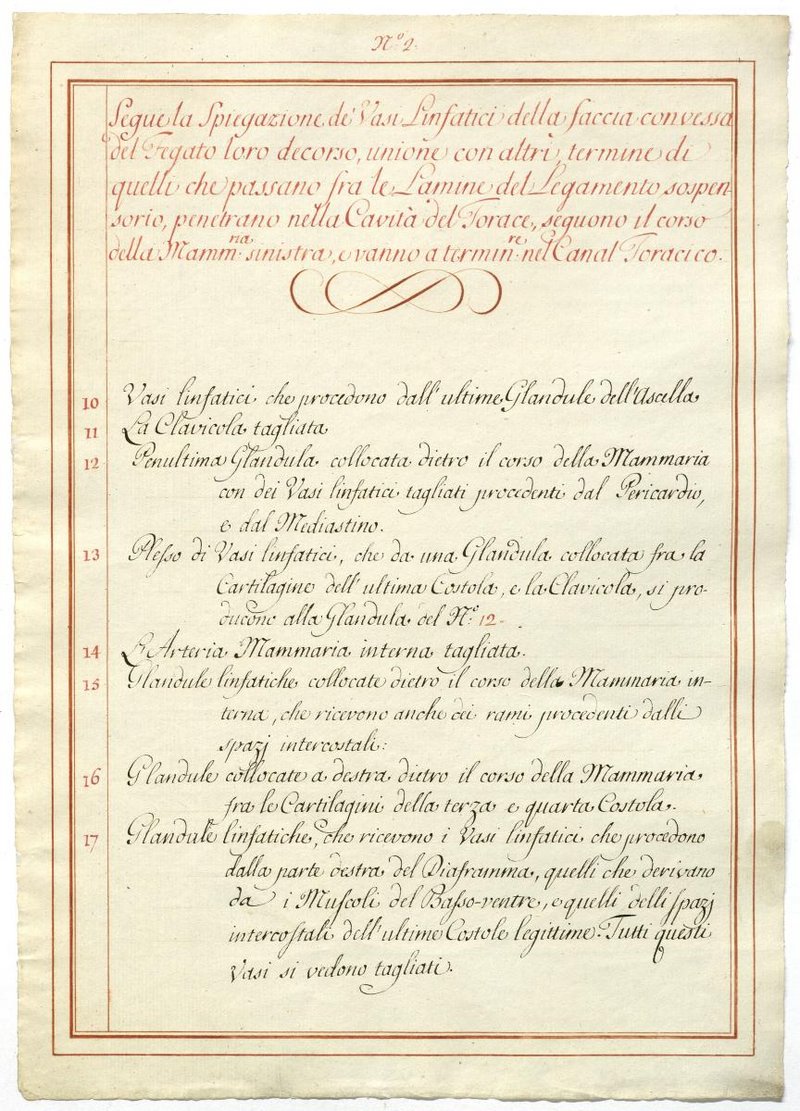 Nº 2.
Segue la Spiegazione de' Vasi Linfatici della faccia convessa
del Fegato loro decorso, unione con altri, termine di
quelli che passano fra le Lamine del Legamento sospen-
sorio, penetrano nella Cavità del Torace, seguono il corso
della Mamm.ria sinistra, e vanno a termin.re nel Canal Toracico.
10 Vasi linfatici che procedono dall' ultime Glandule dell'Ascella
11 La Clavicola tagliata
12 Penultima Glandula collocata dietro il corso della Mammaria
con dei Vasi linfatici tagliati procedenti dal Pericardio,
e dal Mediastino.
13 Plesso di Vasi linfatici, che da una Glandula collocata fra la
Cartilagine dell' ultima Costola, e la Clavicola, si pro-
ducono alla Glandula del Nº 12.
14 L'Arteria Mammaria interna tagliata.
15 Glandule linfatiche collocate dietro il corso della Mammaria in-
terna, che ricevono anche dei rami procedenti dalli
spazj intercostali:
16 Glandule collocate a destra dietro il corso della Mammaria
fra le Cartilagini della terza e quarta Costola.
17 Glandule linfatiche, che ricevono i Vasi linfatici che procedono
dalla parte destra del Diaframma, quelli che derivano
da i Muscoli del Basso-ventre, e quelli delli spazj
intercostali dell' ultime Costole legittime. Tutti questi
Vasi si vedono tagliati.